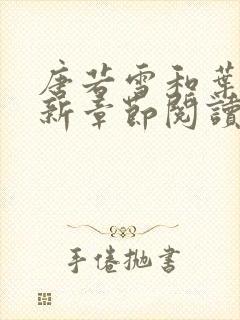 唐若雪和葉
新章節閱讀
手倦拋書